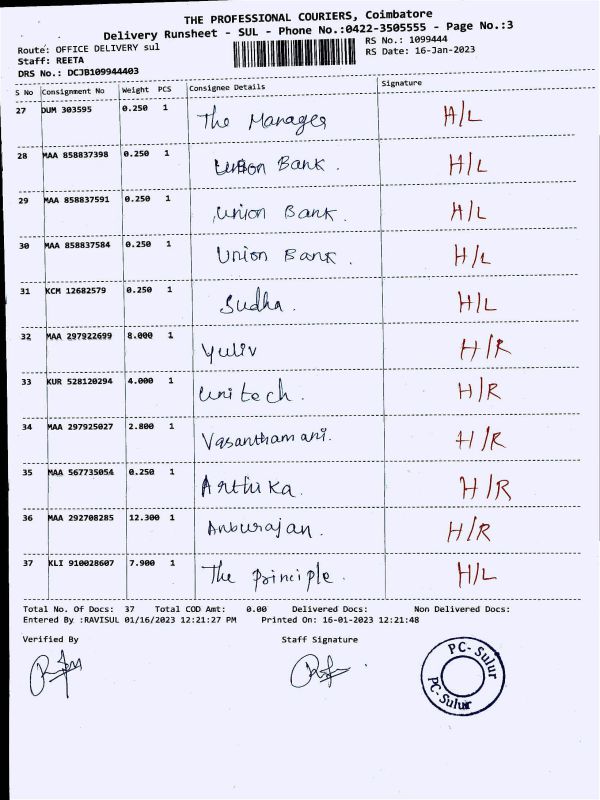 THE PROFESSIONAL COURIERS, Coimbatore
Delivery Runsheet - SUL - Phone No.:0422-3505555 - Page No.:3
Route: OFFICE DELIVERY sul RS No.: 1099444
Staff: REETA RS Date: 16-Jan-2023
DRS No.: DCJB109944403
S No Consignment No Weight PCS Consignee Details Signature
27 DUM 303595 0.250 1 The Manager H/L
28 MAA 858837398 0.250 1 Union Bank. H/L
29 MAA 858837591 0.250 1 Union Bank. H/L
30 MAA 858837584 0.250 1 Union Bank. H/L
31 KCM 12682579 0.250 1 Sudha. H/L
32 MAA 297922699 8.000 1 Yuliv H/R
33 KUR 528120294 4.000 1 Unitech. H/R
34 MAA 297925027 2.800 1 Vasanthamani. H/R
35 MAA 567735054 0.250 1 Arthika. H/R
36 MAA 292708285 12.300 1 Anburajan. H/R
37 KLI 910028607 7.900 1 The principle. H/L
Total No. Of Docs: 37 Total COD Amt: 0.00 Delivered Docs: Non Delivered Docs:
Entered By :RAVISUL 01/16/2023 12:21:27 PM Printed On: 16-01-2023 12:21:48
Verified By Staff Signature
PC-Sulur
PC-Sulur